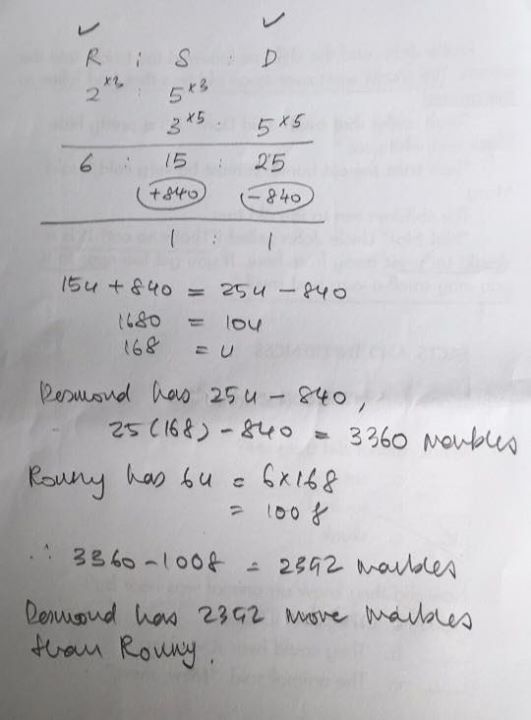 ✓ ✓
R : S : D
2 ×3 5 ×3
3 ×5 5 ×5
6 : 15 : 25
+840 -840
1 : 1
15u + 840 = 25u - 840
1680 = 10u
168 = u
Desmond has 25u - 840,
25(168) - 840 = 3360 marbles
Ronny has 6u = 6×168
= 1008
∴ 3360 - 1008 = 2392 marbles
Desmond has 2392 more marbles
than Ronny.